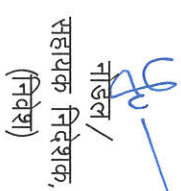 नोडल /
सहायक निदेशक,
(निवेश)